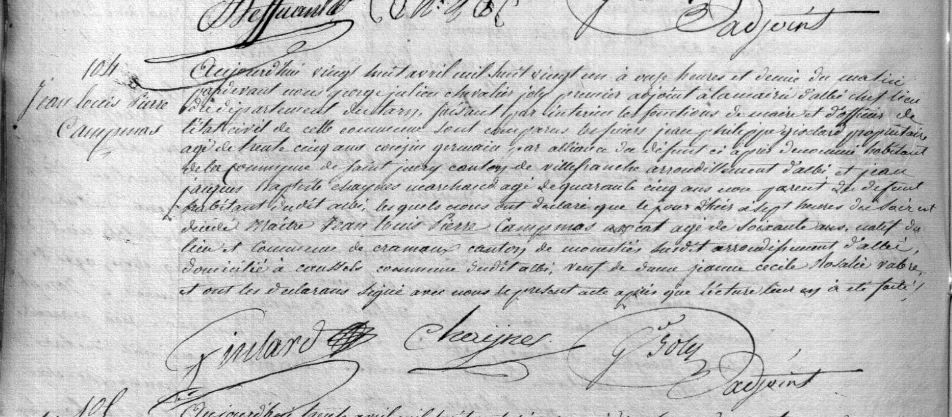 adjoint
104
Jean Louis Pierre
Campmas
Aujourdhui vingt huit avril mil huit vingt un à onze heures et demie du matin
pardevant nous george julien chevalier joly premier adjoint à la mairie d'albi chef lieu
du département du tarn, faisant par interim les fonctions de maire et d'officier de
l'état civil de cette commune sont comparus les sieurs jean philippe proprietaire
agé de trente cinq ans cousin germain par alliance du défunt ci après denommé habitant
de la commune de saint jury canton de villefranche arrondissement d'albi et jean
jacques Baptiste Chaynes marchand agé de quarante cinq ans non parent du defunt
habitant dudit albi, les quels nous ont declaré que le jour d'hier à sept heures du soir est
decedé Maitre Jean Louis Pierre Campmas avocat agé de soixante ans, natif du
lieu et commune de cramaux canton de monestiés susdit arrondissement d'albi,
domicilié à commune dudit albi, veuf de dame jeanne cecile Rosalie vabre,
et ont les declarans signé avec nous le present acte après que lecture leur en a été faite,
Chaynes
Joly
adjoint
105
Aujourdhui trente avril mil huit